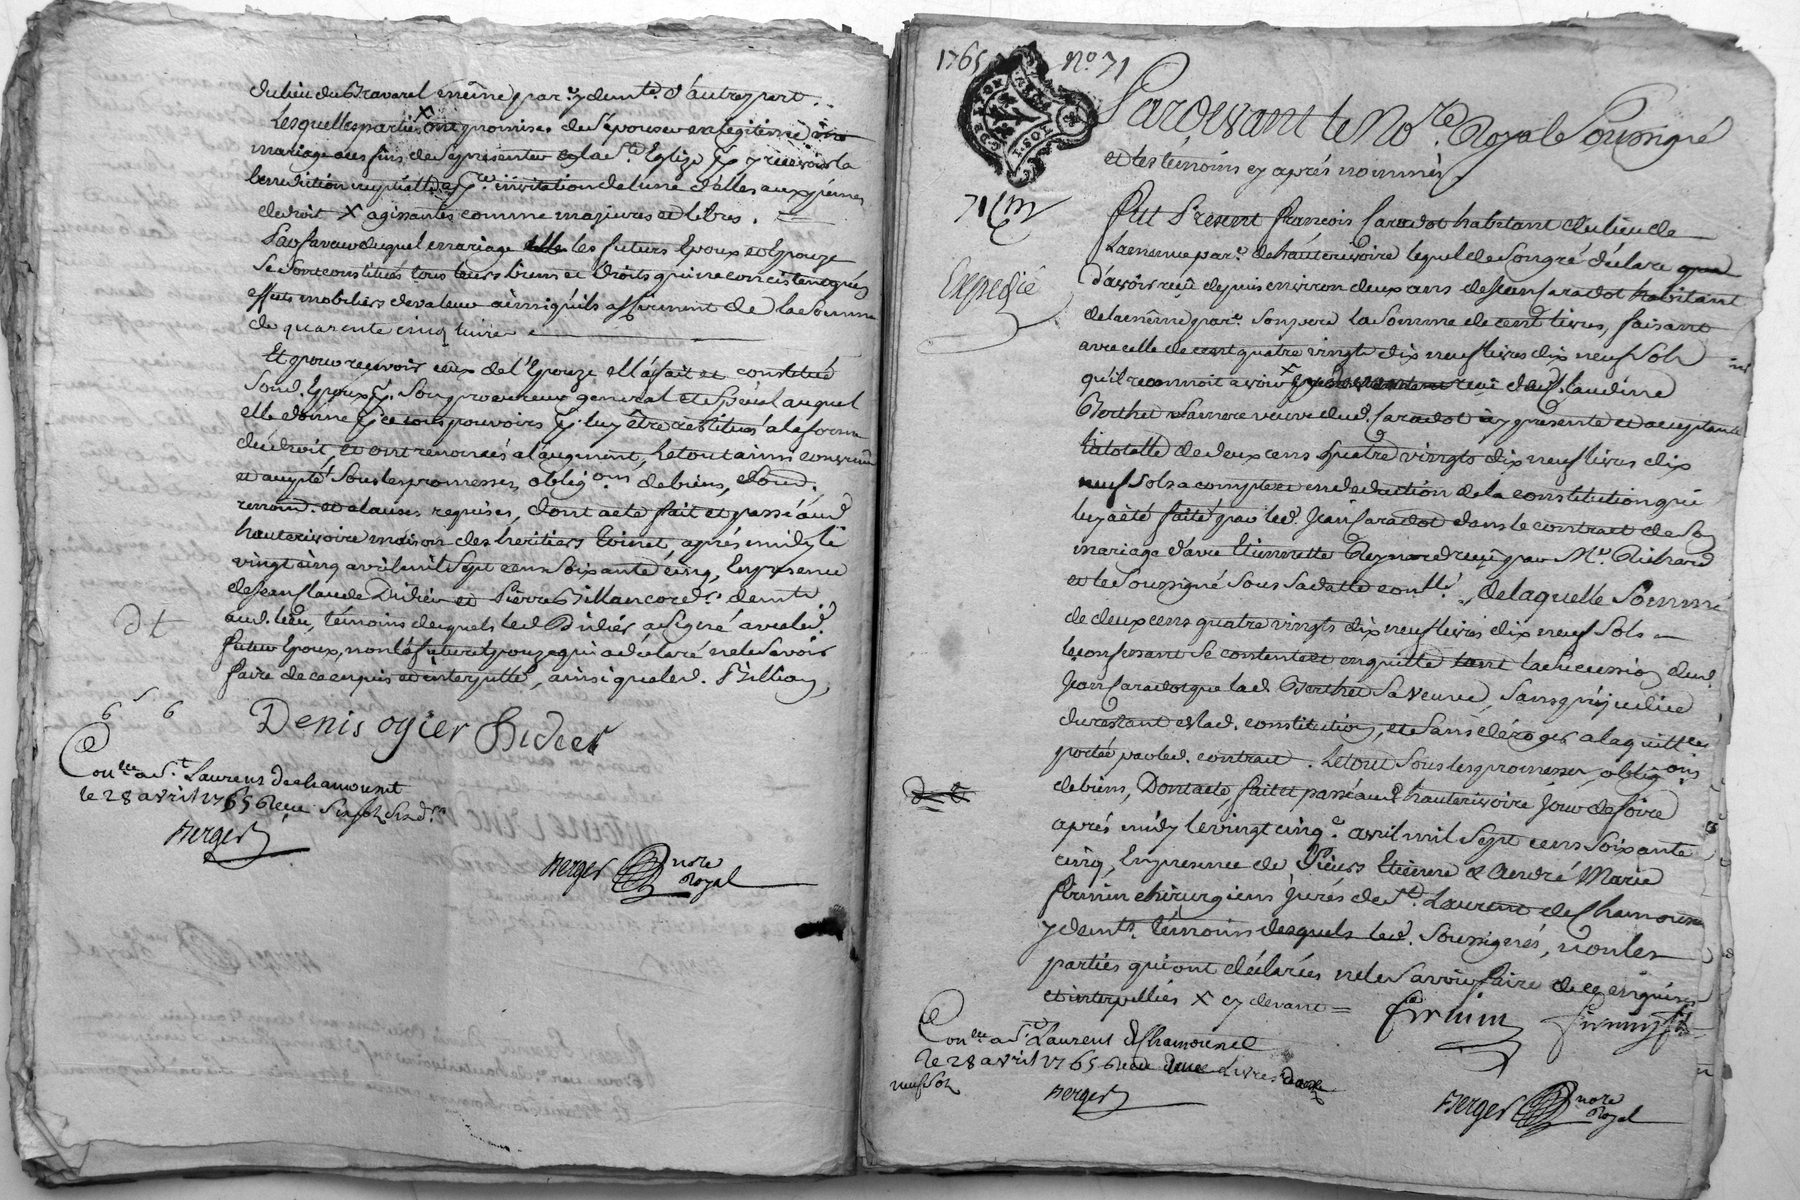 du lieu du Travarel même par.e y demt. d'autre part.
Lesquelles parties X ont promises de s'épouser en légitime
mariage a ces fins de se presenter en la Ste. Eglise p.r y recevoir la
benediction nuptialle a p.re invitation de l'une d'elles aux peines
de droit X agissantes comme majeures et libres.
En faveur duquel mariage les futurs Epoux et Epouze
se sont constitués tous leurs biens et droits qui ne concistent qu'en
effets mobiliers de valeur ainsi qu'ils affirment de la somme
de quarente cinq livres
Et pour recevoir ceux de l'Epouze ell'a fait et constitué
sond. Epoux p.r son procureur general et special auquel
elle donne p.r ce tous pouvoirs p.r luy être restitués a la forme
du droit, et ont renoncés a l'augment, le tout ainsi convenu
et accepté sous les promesses, oblig.ons de biens,
renond. et clauses requises, dont acte fait et passé aud.
hauterivoire maison des heritiers Coinet, aprés midy le
vingt cinq avril mil sept cens soixante cinq, En presence
de Jean Claude Didier et Pierre Villancore demt.
aud. lieu, témoins desquels led. Didier a signé avec led.
futur Epoux, non la future Epouze qui a déclaré ne le savoir
faire de ce enquis et interpellé, ainsi que led. Villion
dt
6 s 6
Denis ogier Didier
Con.lle a St. Laurens de chamousset
le 28 avril 1765 Reçu six sols six d.rs
Berger
Berger nore
Royal
1765 No. 71
Pardevant le No.re Royal Soussigné
et les témoins cy aprés nommés
71 Cm
fut Present françois Caradot habitant du lieu de
Lanenue par.e de hauterivoire lequel de son gré déclare que
Expedié
d'avoir reçu depuis environ deux ans de Jean Caradot habitant
de la même par.e son pere la somme de cent livres, faisant
avec celle de cent quatre vingts dix neuf livres dix neuf sols
qu'il reconnoit avoir X reçu de d. Claudine
Berthet sa mere veuve dud. Caradot icy presente et acceptante
la totalle de deux cens quatre vingts dix neuf livres dix
neuf sols a compte et en deduction de la constitution qui
luy a été faite par led. Jean Caradot dans le contrat de son
mariage d'avec Etiennette Reynard reçu par Me. Richard
et le soussigné sous sa datte cont.llé, de laquelle somme
de deux cens quatre vingts dix neuf livres dix neuf sols
le confessant se contente et en quitte tant la succession dud.
Jean Caradot que lad. Berthet sa veuve, sans préjudice
du restant de lad. constitution, et sans déroger a la quitt.ce
portée par led. contrat. Le tout sous les promesses, oblig.ons
de biens, Dont acte, fait et passé aud. hauterivoire jour de foire
aprés midy le vingt cinq.e avril mil sept cens soixante
cinq, En presence de Sieurs Etienne & André Marie
firmin chirurgiens jurés de St. Laurent de Chamousset
y demts. témoins desquels led. soussignés, non les
parties qui ont déclarées ne le savoir faire de ce enquises
et interpellées X cy devant =
firmin firmin fils
Con.lle a St. Laurens de Chamousset
le 28 avril 1765 Reçu deux livres
neuf sols
Berger
Berger nore
Royal